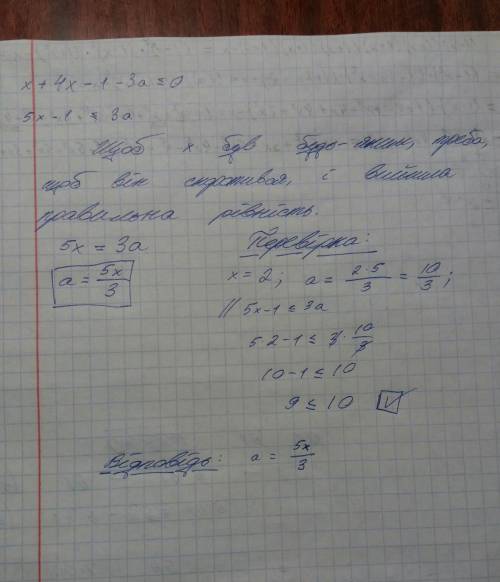 x + 4x - 1 - 3a ≤ 0
5x - 1 ≤ 3a
Щоб x був будь-яким, треба,
щоб він скротився, і вийшла
правильна рівність.
5x = 3a
a = 5x/3
Перевірка:
x = 2; a = 2·5/3 = 10/3;
// 5x - 1 ≤ 3a
5·2 - 1 ≤ 3·10/3
10 - 1 ≤ 10
9 ≤ 10
Відповідь: a = 5x/3